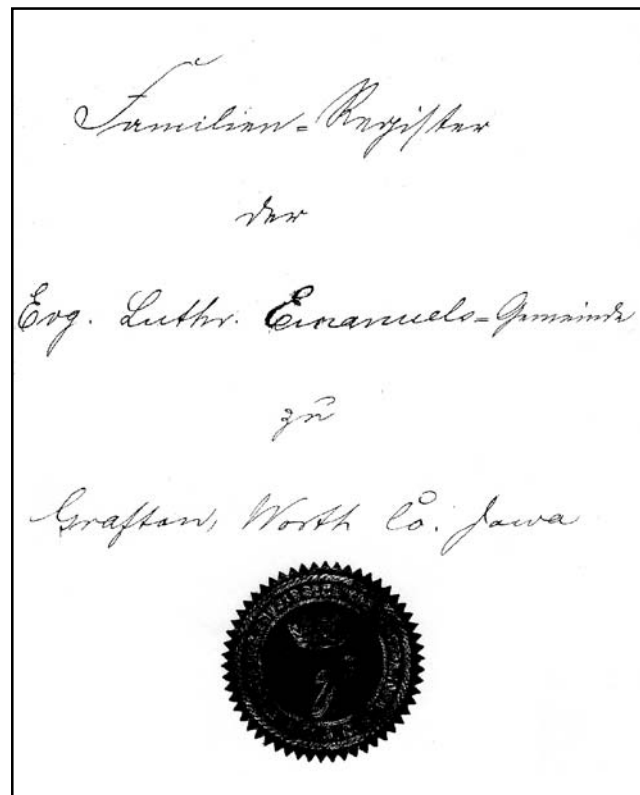 Familien=Register
der
Evg. Luthr. Emanuels=Gemeinde
zu
Grafton, Worth Co. Iowa